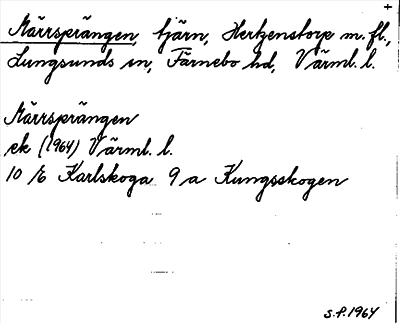 +
Märrsprängen, tjärn, Hertzenstorp m.fl.,
Lungsunds sn, Färnebo hd, Värml. l.
Märrsprängen
ek (1964) Värml. l.
10 E Karlskoga 9 a Kungsskogen
S.P. 1964